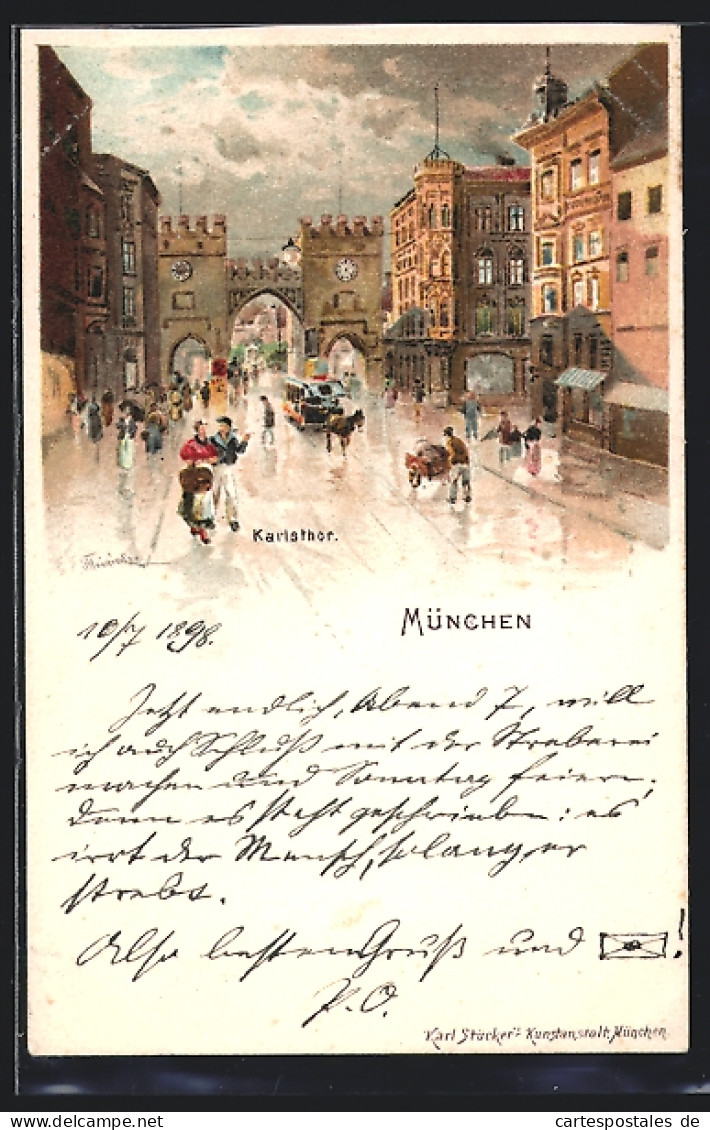 Karlsthor.
MÜNCHEN
10/7 1898.
Jetzt endlich, Abend 7, will
ich auch Schluß mit der Streberei
machen und Sonntag feiern,
denn es steht geschrieben: es
irrt der Mensch, solang er
strebt.
Also besten Gruß und !
P. O.
Karl Stücker's Kunstanstalt, München.
cartespostales de